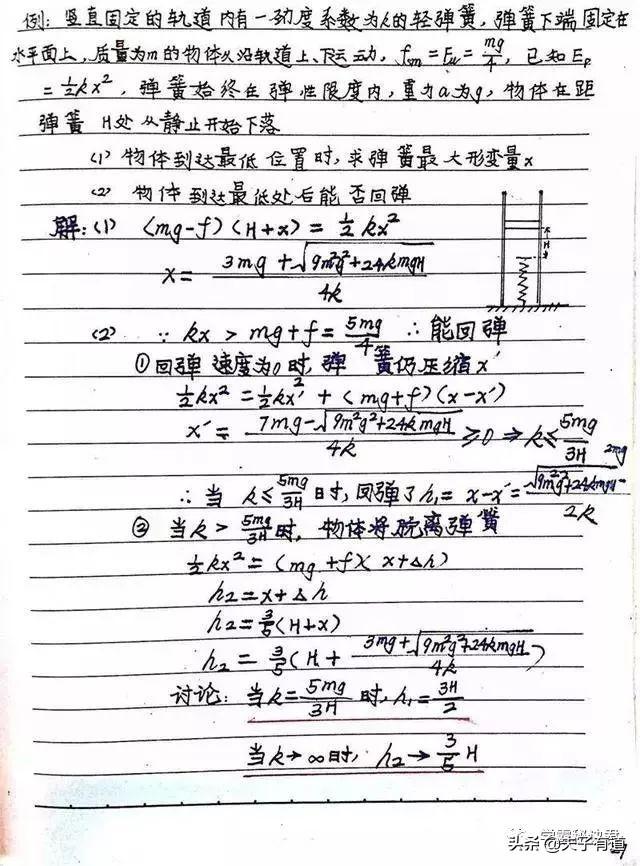 例：竖直固定的轨道内有一劲度系数为k的轻弹簧，弹簧下端固定在
水平面上，质量为m的物体从沿轨道上、下运动，fsm=Fμ=mg/4，已知Ep
=½kx²，弹簧始终在弹性限度内，重力a为g，物体在距
弹簧H处从静止开始下落
(1) 物体到达最低位置时，求弹簧最大形变量x
(2) 物体到达最低处后能否回弹
解：(1) (mg-f)(H+x)=½kx²
x=(3mg+√(9m²g²+24kmgH))/4k
H
(2) ∵ kx>mg+f=5mg/4 ∴能回弹
①回弹速度为0时，弹簧仍压缩x′
½kx²=½kx′²+(mg+f)(x-x′)
x′=(7mg-√(9m²g²+24kmgH))/4k≥0⇒k≤5mg/3H
∴当k≤5mg/3H时，回弹了h₁=x-x′=(√(9m²g²+24kmgH)-2mg)/2k
②当k>5mg/3H时，物体将脱离弹簧
½kx²=(mg+f)(x+Δh)
h₂=x+Δh
h₂=3/5(H+x)
h₂=3/5(H+(3mg+√(9m²g²+24kmgH))/4k)
讨论：当k=5mg/3H时，h₁=3H/2
当k→∞时，h₂→3/5H
学霸秘决君
头条@天子有道